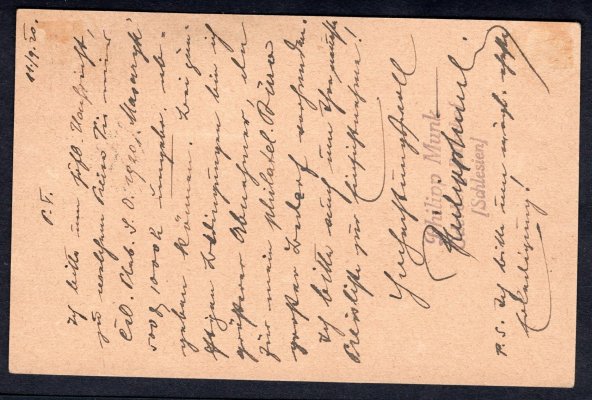 11./9. 20.
P. T.
Ich bitte um Nachricht,
zu welchem Preise Sie mir
S. O. 1920, Masaryk
500 & 1000 h
geben können. Bei gün-
stigen Bedingungen bin ich
größerer Abnehmer, da
für mein philatel. Büro
großer Bedarf vorhanden.
Ich bitte auch um
Preisliste zur Einsichtnahme!
Hochachtungsvoll
Philipp Munk
[Schlesien]
P. S. Ich bitte um
Erledigung!